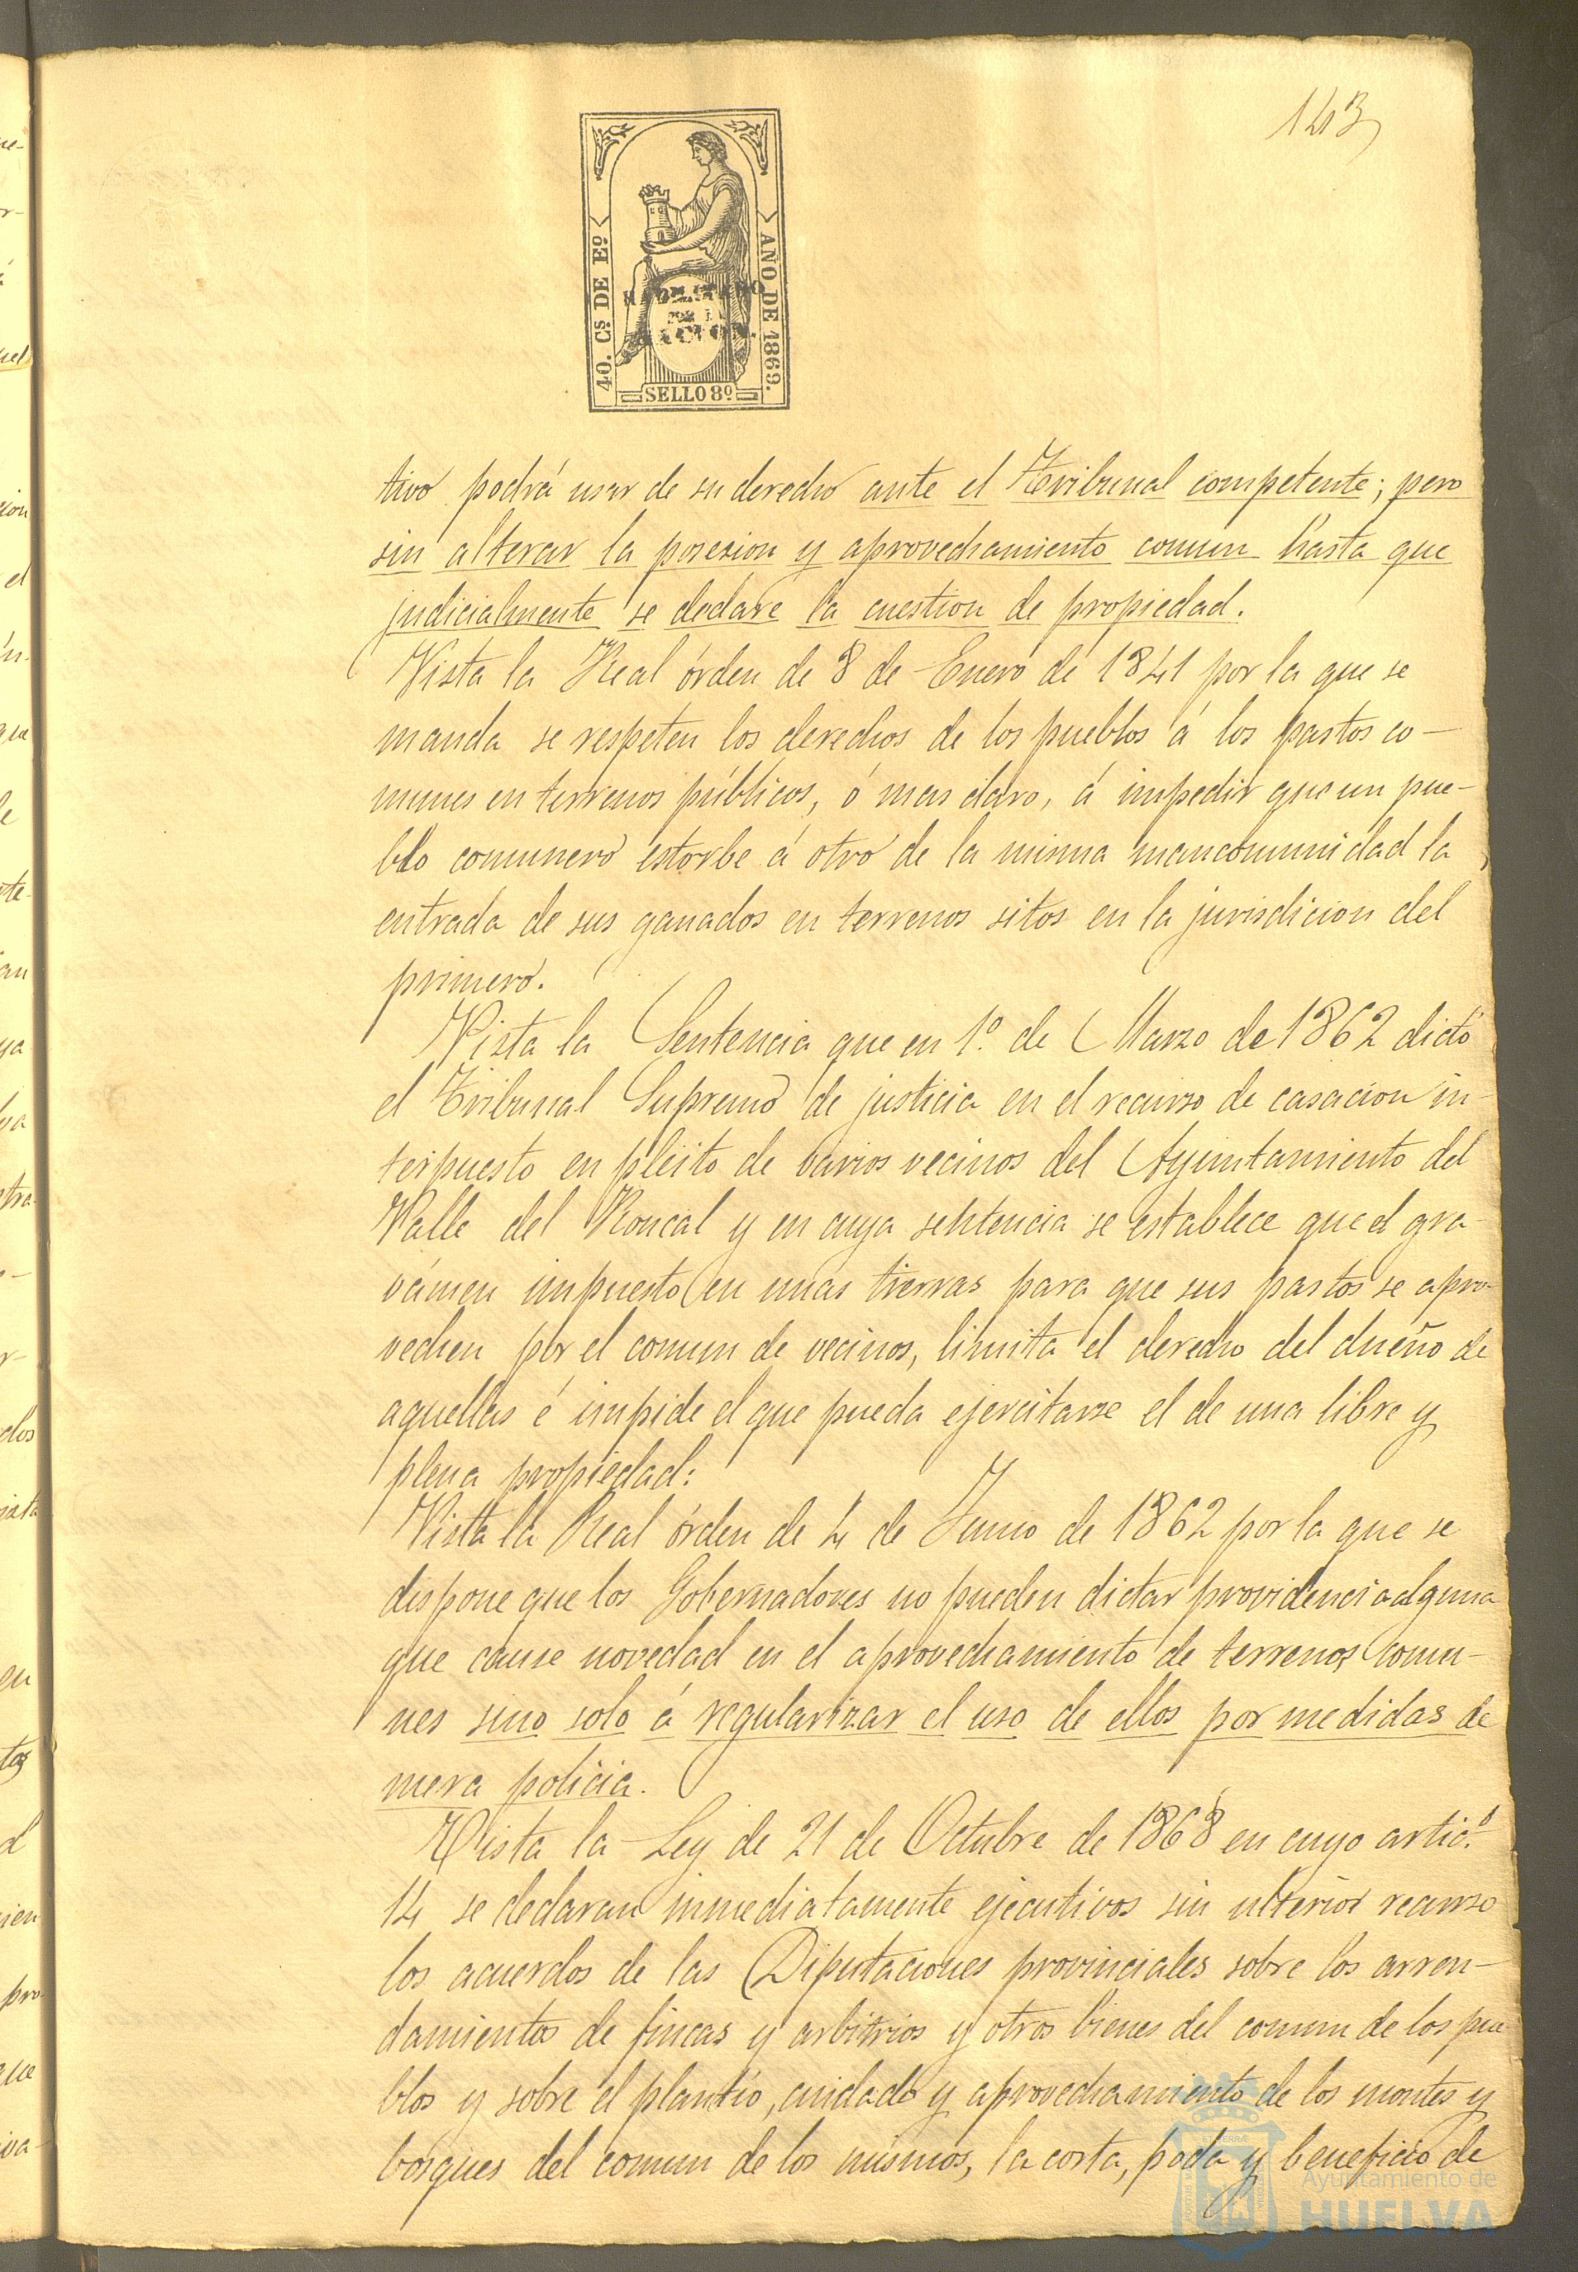 143
40. Cs DE Eo
AÑO DE 1869.
HABILITADO
POR LA
NACION.
SELLO 8º
tivo podrá usar de su derecho ante el Tribunal competente; pero
sin alterar la posesion y aprovechamiento comun hasta que
judicialmente se declare la cuestion de propiedad.
Vista la Real órden de 8 de Enero de 1841 por la que se
manda se respeten los derechos de los pueblos á los pastos co-
munes en terrenos públicos, ó mas claro, á impedir que un pue-
blo comunero estorbe á otro de la misma mancomunidad la
entrada de sus ganados en terrenos sitos en la jurisdicion del
primero.
Vista la Sentencia que en 1º. de Marzo de 1862 dictó
el Tribunal Supremo de justicia en el recurso de casacion in-
terpuesto en pleito de varios vecinos del Ayuntamiento del
Valle del Roncal y en cuya sentencia se establece que el gra-
vámen impuesto en unas tierras para que sus pastos se apro-
vechen por el comun de vecinos, limita el derecho del dueño de
aquellas é impide el que pueda ejercitarse el de una libre y
plena propiedad:
Vista la Real órden de 4 de Junio de 1862 por la que se
dispone que los Gobernadores no pueden dictar providencia alguna
que cause novedad en el aprovechamiento de terrenos comu-
nes sino solo á regularizar el uso de ellos por medidas de
mera policia.
Vista la Ley de 21 de Octubre de 1868 en cuyo artic.º
14 se declaran inmediatamente ejecutivos sin ulterior recurso
los acuerdos de las Diputaciones provinciales sobre los arren-
damientos de fincas y arbitrios y otros bienes del comun de los pue
blos y sobre el plantío, cuidado y aprovechamiento de los montes y
bosques del comun de los mismos, la corta, poda y beneficio de
Ayuntamiento de
HUELVA